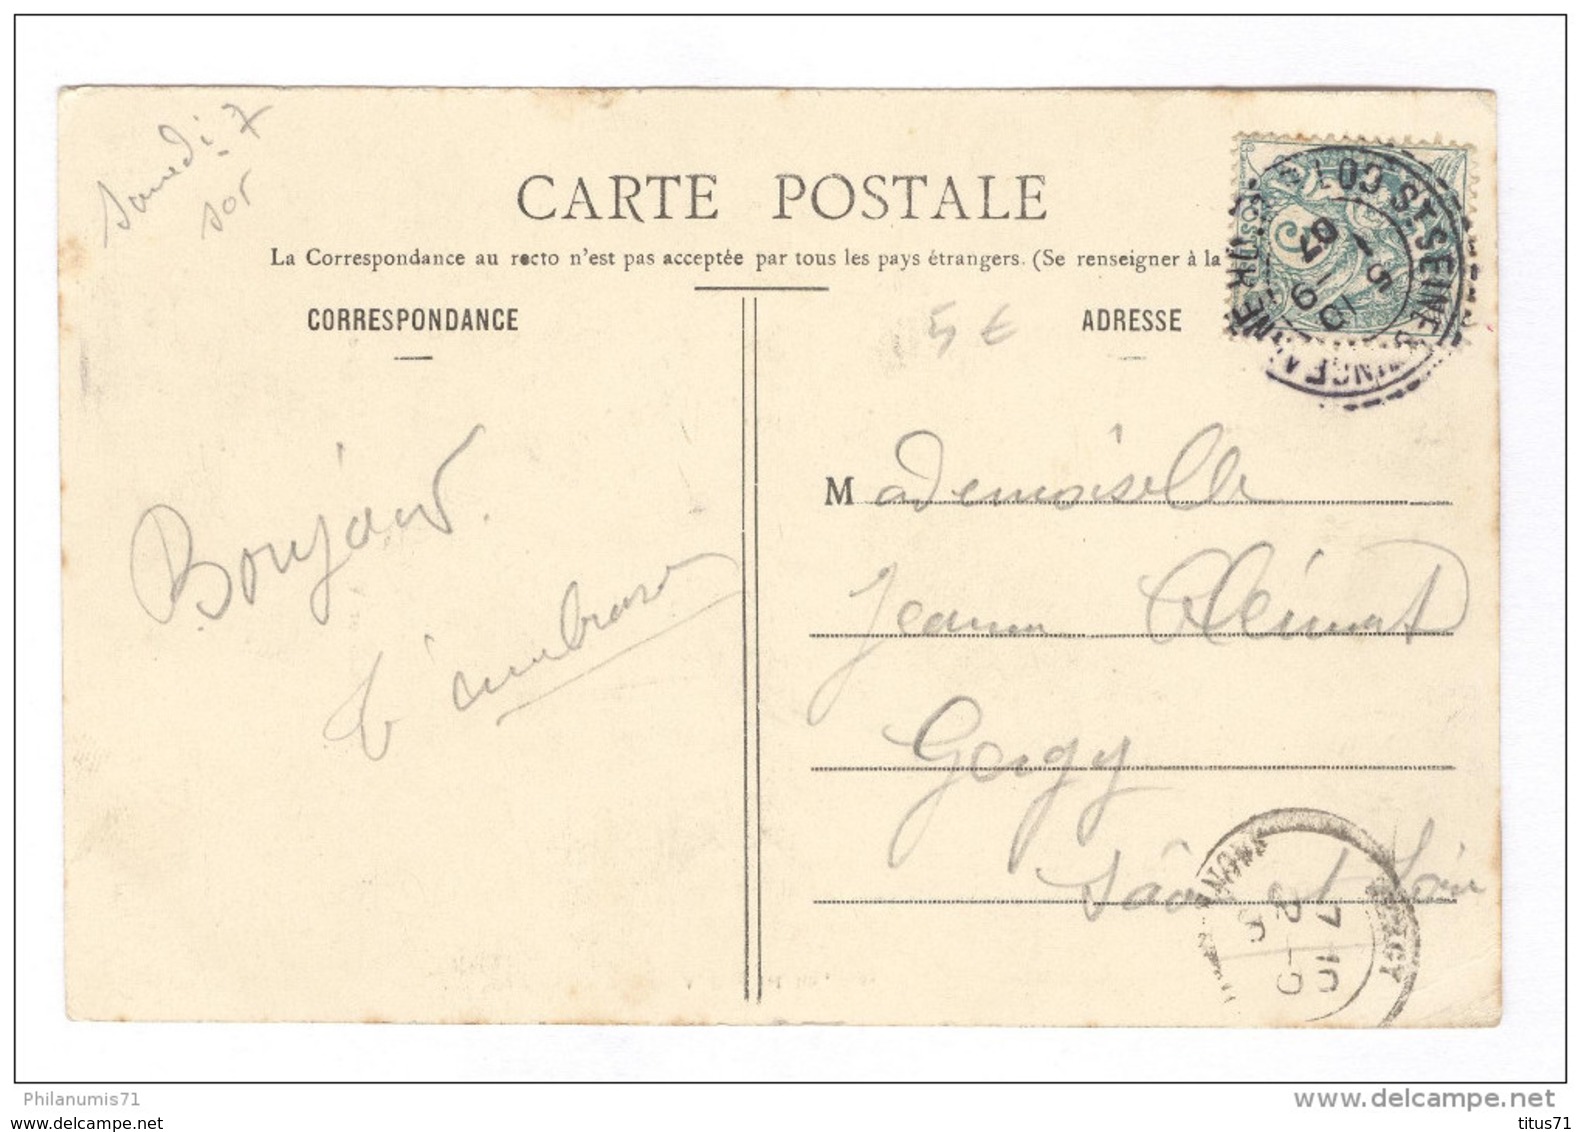 Samedi 7
soir
CARTE POSTALE
La Correspondance au recto n'est pas acceptée par tous les pays étrangers. (Se renseigner à la
CORRESPONDANCE
ADRESSE
5 €
Bonjour.
t'embrasse
M ademoiselle
Jeanne Clément
Gergy
Saône et Loire
7-10
Philanumis71
www.delcampe.net
www.delcampe.net
titus71